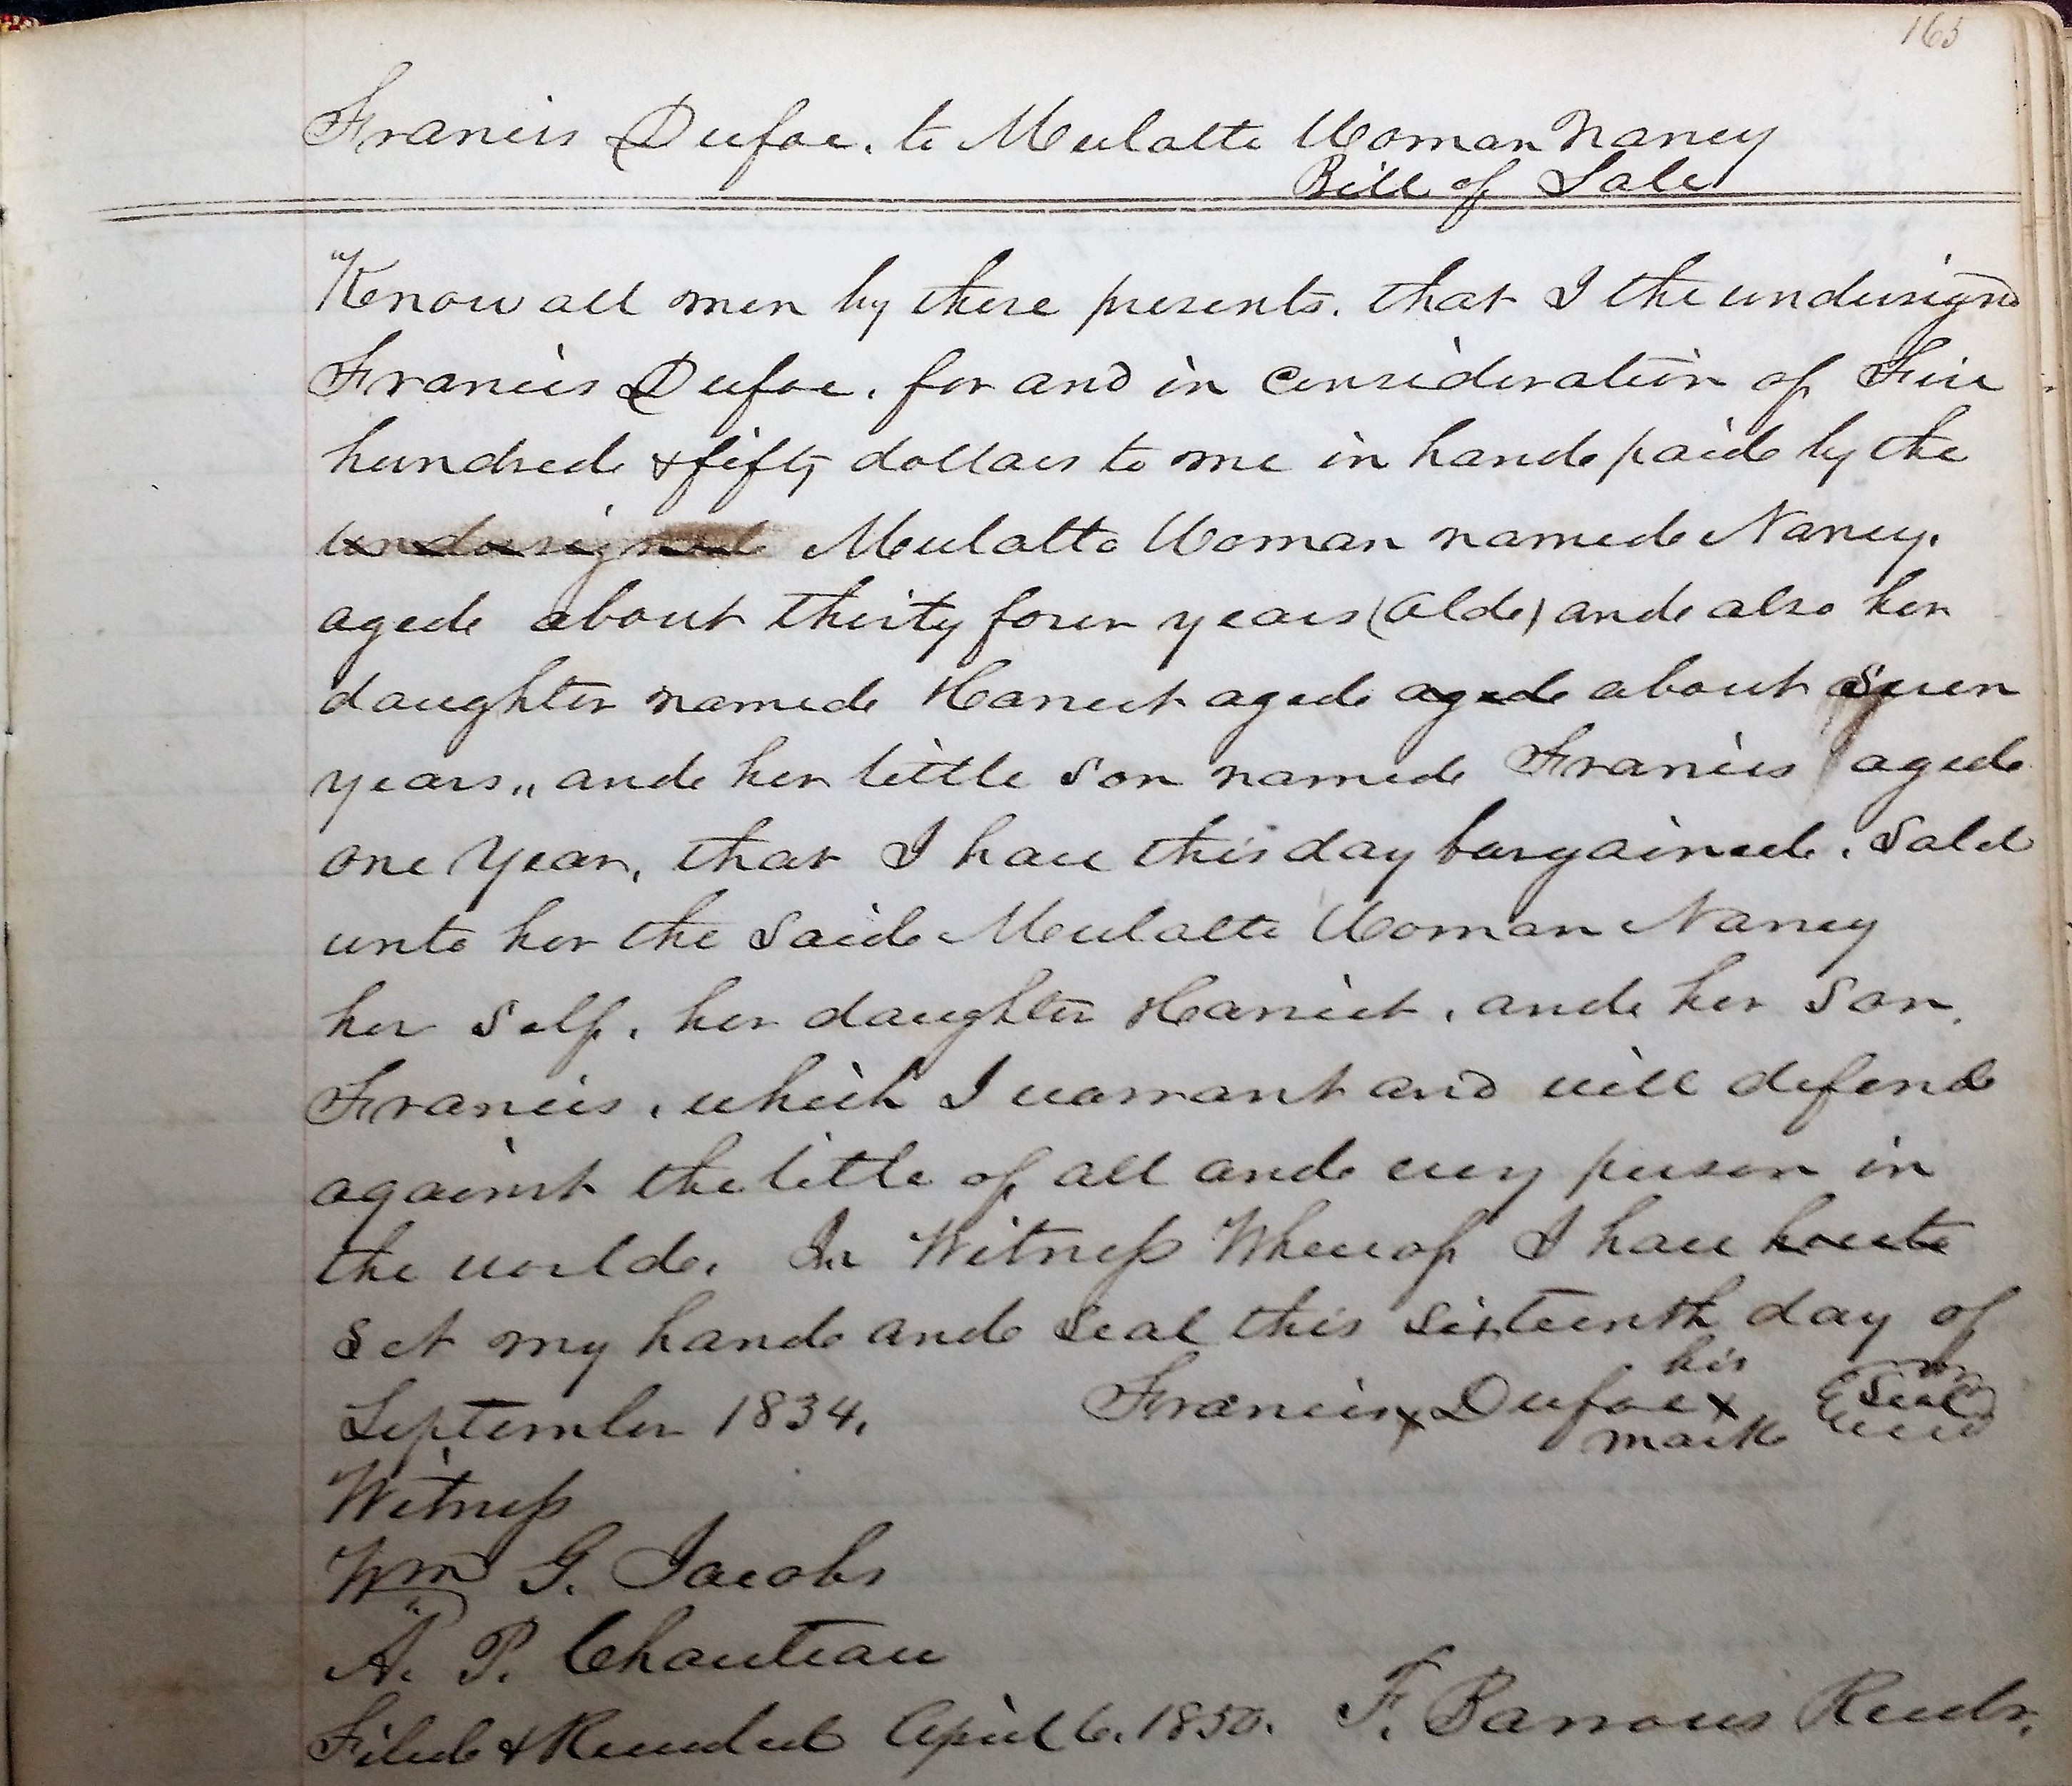 165
Francis Dufoe. to Mulatto Woman Nancy
Bill of Sale
"Know all men by these presents. that I the undersigned
Francis Dufoe. for and in consideration of Five
hundred & fifty dollars to me in hand paid by the
undersigned Mulatto Woman named Nancy.
aged about thirty four years (old) and also her
daughter named Harriet aged aged about seven
years,, and her little son named Francis aged
one year, that I have this day bargained. sold
unto her the said Mulatto Woman Nancy
her self. her daughter Harriet. and her son.
Francis. which I warrant and will defend
against the title of all and every person in
the world. In Witness Whereof I have
set my hand and seal this sixteenth day of
September 1834. Francis x Dufoe x Seal
his
mark
Witness
Wm G. Jacobs
A. P. Chouteau
Filed & Recorded April 6. 1850. F. Barrows Recdr.